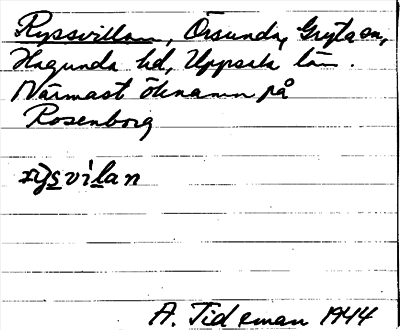 Ryssvillan, Örsunda, Gryta sn,
Hagunda hd, Uppsala län.
Närmast öknamn på
Rosenborg
rysvilan
A. Tideman 1944